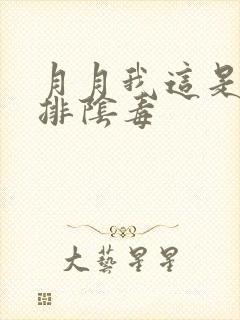 月月我這是
排陰毒
大藝星星